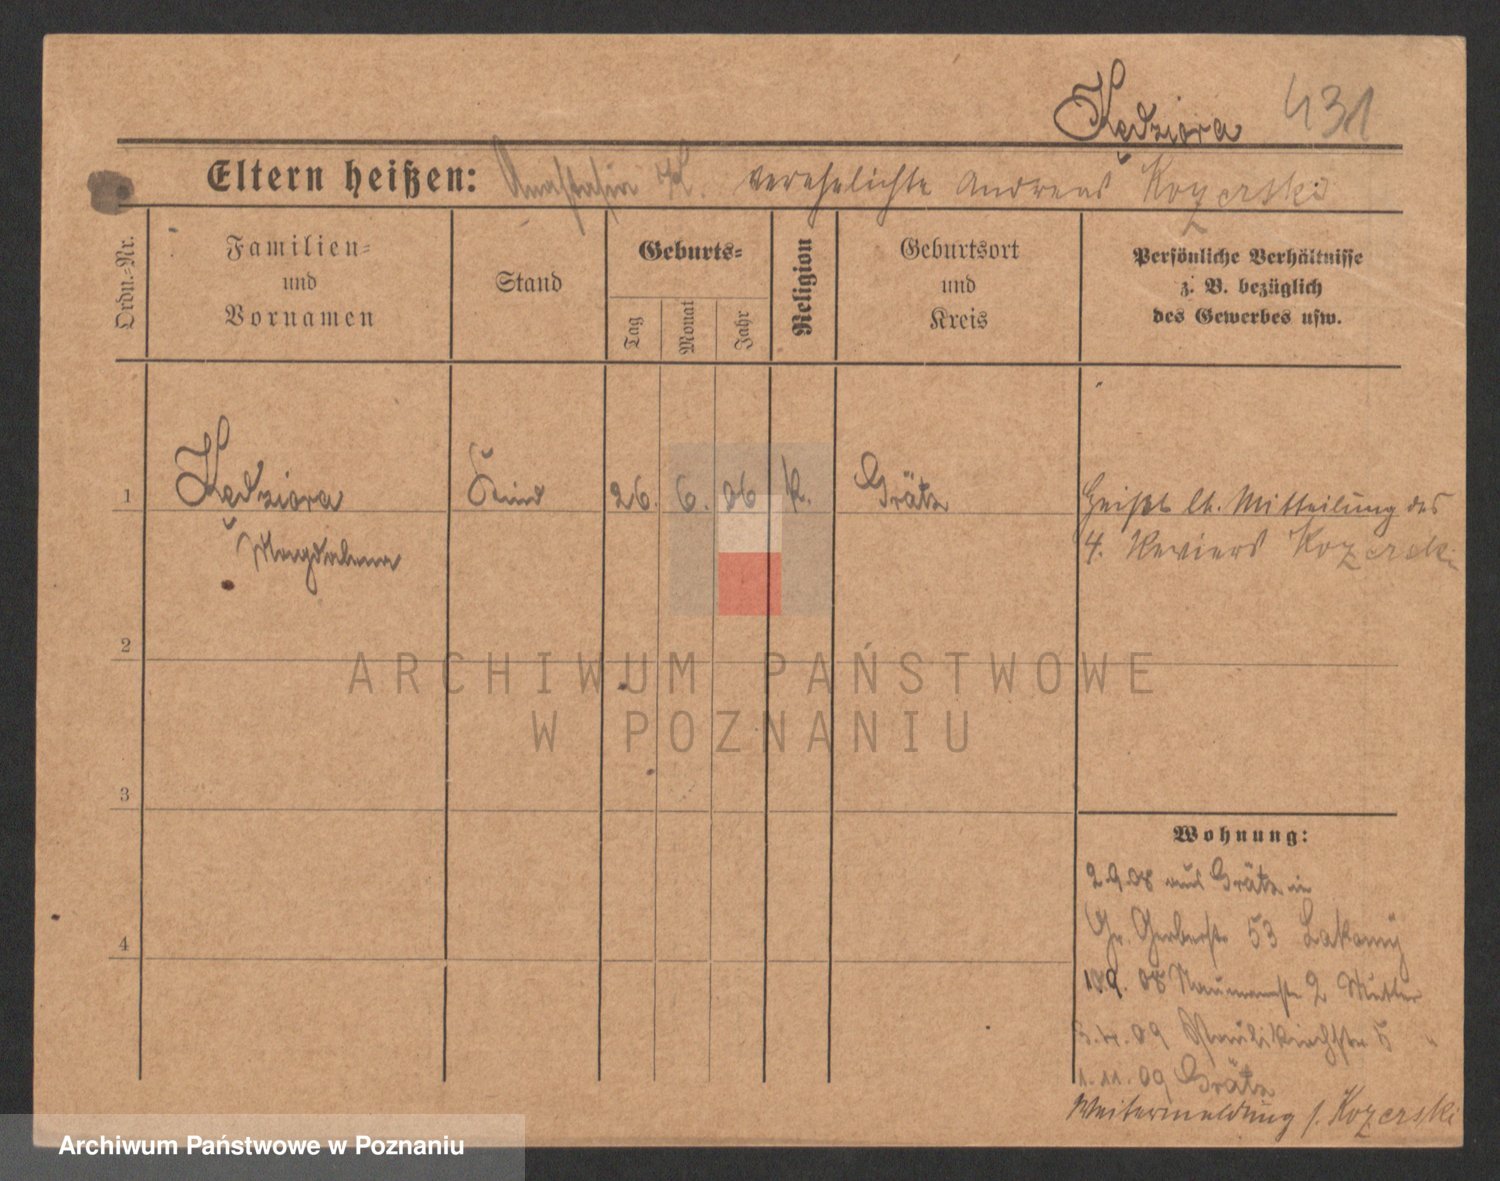 Kędziora 431
Eltern heißen: Anastasia K. verehelichte Andreas Kozerski
Ordn.-Nr.
Familien-
und
Vornamen
Stand
Geburts-
Tag
Monat
Jahr
Religion
Geburtsort
und
Kreis
Persönliche Verhältnisse
z. B. bezüglich
des Gewerbes usw.
1 Kędziora Kind 26. 6. 06 k. Grätz Heißt lt. Mitteilung des
Magdalena 4. Reviers Kozerski
2
ARCHIWUM PAŃSTWOWE
W POZNANIU
3
Wohnung:
2.9.08 aus Grätz in
Gr. Gerberstr. 53 Lakomy
9. 08 Naumannstr. 2 Mutter
09 Paulikirchstr. 5 "
1.11.09 Grätz
Weitermeldung s. Kozerski
4
Archiwum Państwowe w Poznaniu